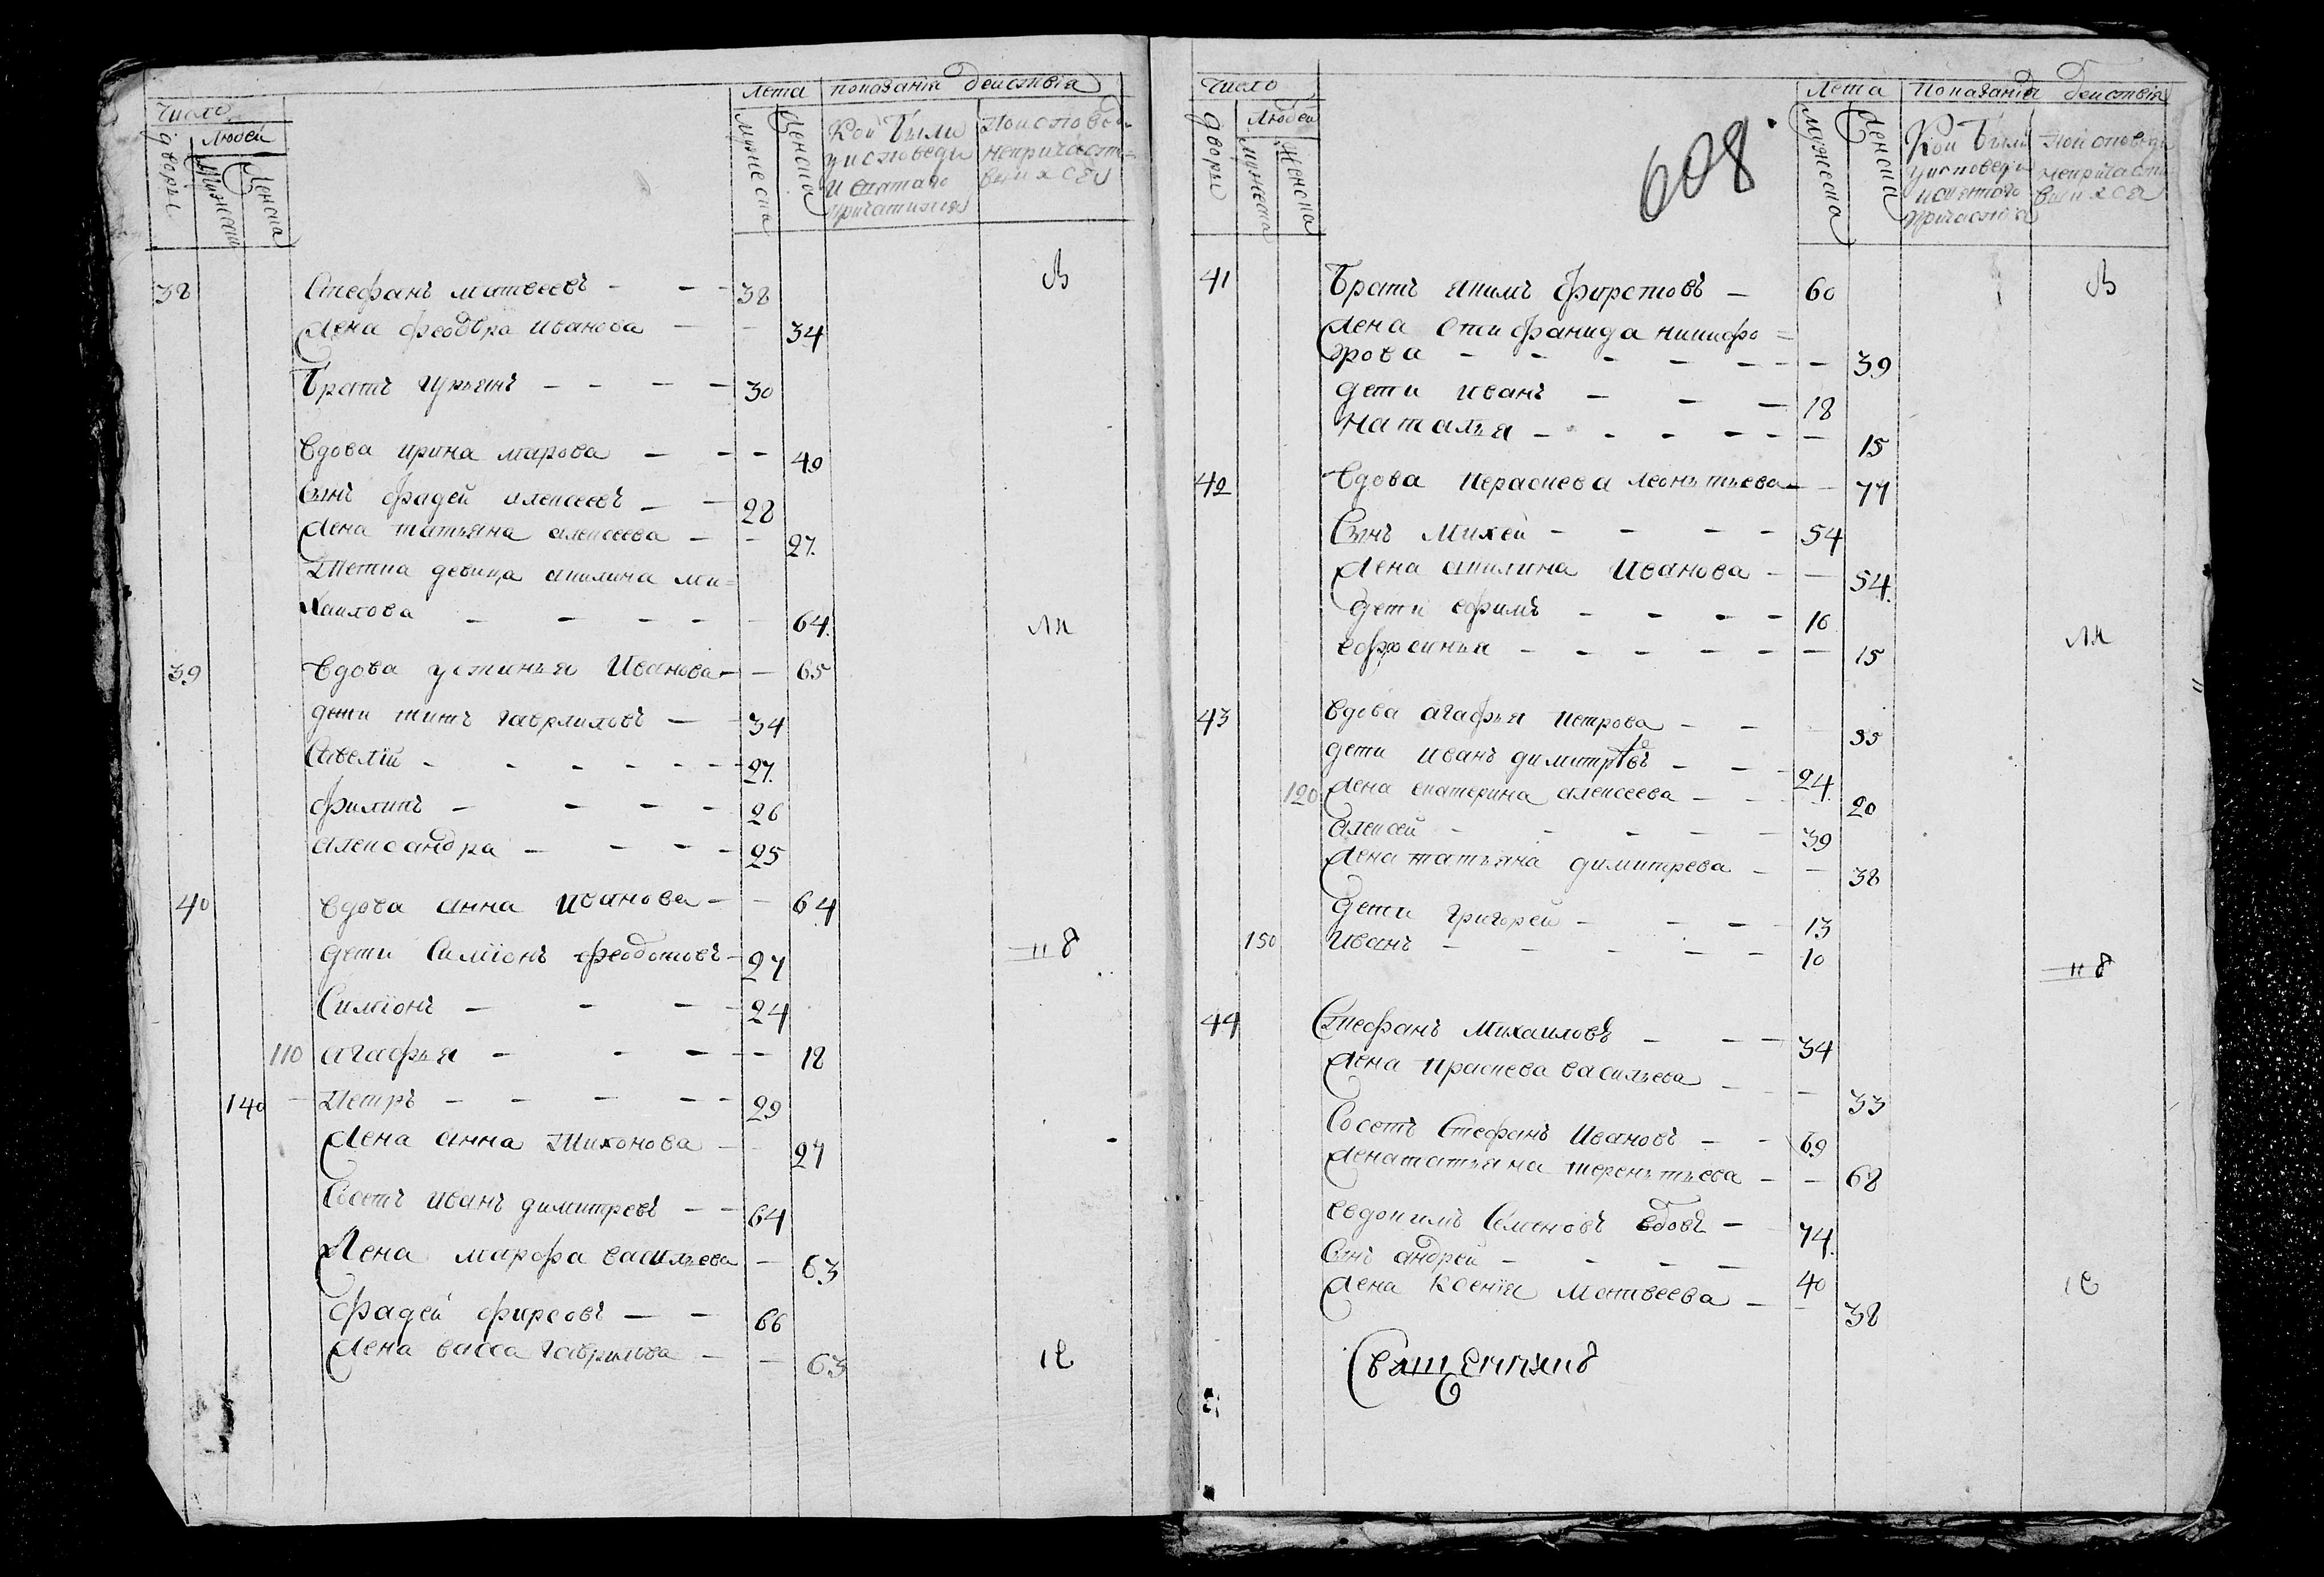 Число
Лета показанія действія
дворы
Людей
мужеска
Женска
мужеска
Женска
Кои были
у исповеди
и святаго
причастия
По исповед
непричаст-
вшихся
38 Стефанъ матвеевъ - - - 38
Жена феодора иванова - - 34
Братъ гурьянъ - - - - 30
Вдова ирина марова - - - 49
Сынъ фадей алексеевъ - - 28
Жена татьяна алексеева - - 27.
Тетка девица акилина ми=
хаилова - - - - - 64.
39 Вдова устинья Иванова - - 65
дети титъ гаврилловъ - - 34
Савелій - - - - - - 27.
филипъ - - - - 26
александра - - - - 25
40 Вдова анна Иванова - - 64
дети Симіонъ феодотовъ - 27
Симіонъ - - - - 24
110 агафья - - - - - 18
140 - Петръ - - - - - 29
Жена анна Тихонова - - 27
Соседъ иванъ димитревъ - - 64
Жена марфа васильева - 63
фадей фирсовъ - - 66
Жена васса гаврилова - - 63
Число
Лета Показанія действія
дворы
Людей
мужеска
Женска
мужеска
женска
Кои были
у исповеди
и святаго
причастия
По исповеди
непричаст
вшихся
608.
41 Братъ якимъ фирстовъ - 60
Жена стифанида никифо=
рова - - - - - - - 39
дети иванъ - - - 18
Наталья - - - - - - 15
42 Вдова параскева леонтьева - - 77
Сынъ Михей - - - - 54
Жена акилина Иванова - - 54.
дети ефимъ - - - - 16
ефросинья - - - - - - 15
43 Вдова агафья петрова - - - 55
дети иванъ димитревъ - - - 24.
120 Жена екатерина алексеева - - 20
алексей - - - - - 39
Жена татьяна димитрева - - 38
дети григорей - - - 13
150 Иванъ - - - - - 10
44 Стефанъ Михаиловъ - - - 34
Жена праскева васильева - - 33
Соседъ Стефанъ Ивановъ - - 69
Жена татьяна терентьева - - 68
евдокимъ Семеновъ вдовъ - 74.
Сынъ андрей - - - - 40
Жена Ксенія Матвеева - - 38
В
лк
нъ
іе
В
лк
нъ
іе
Священникъ